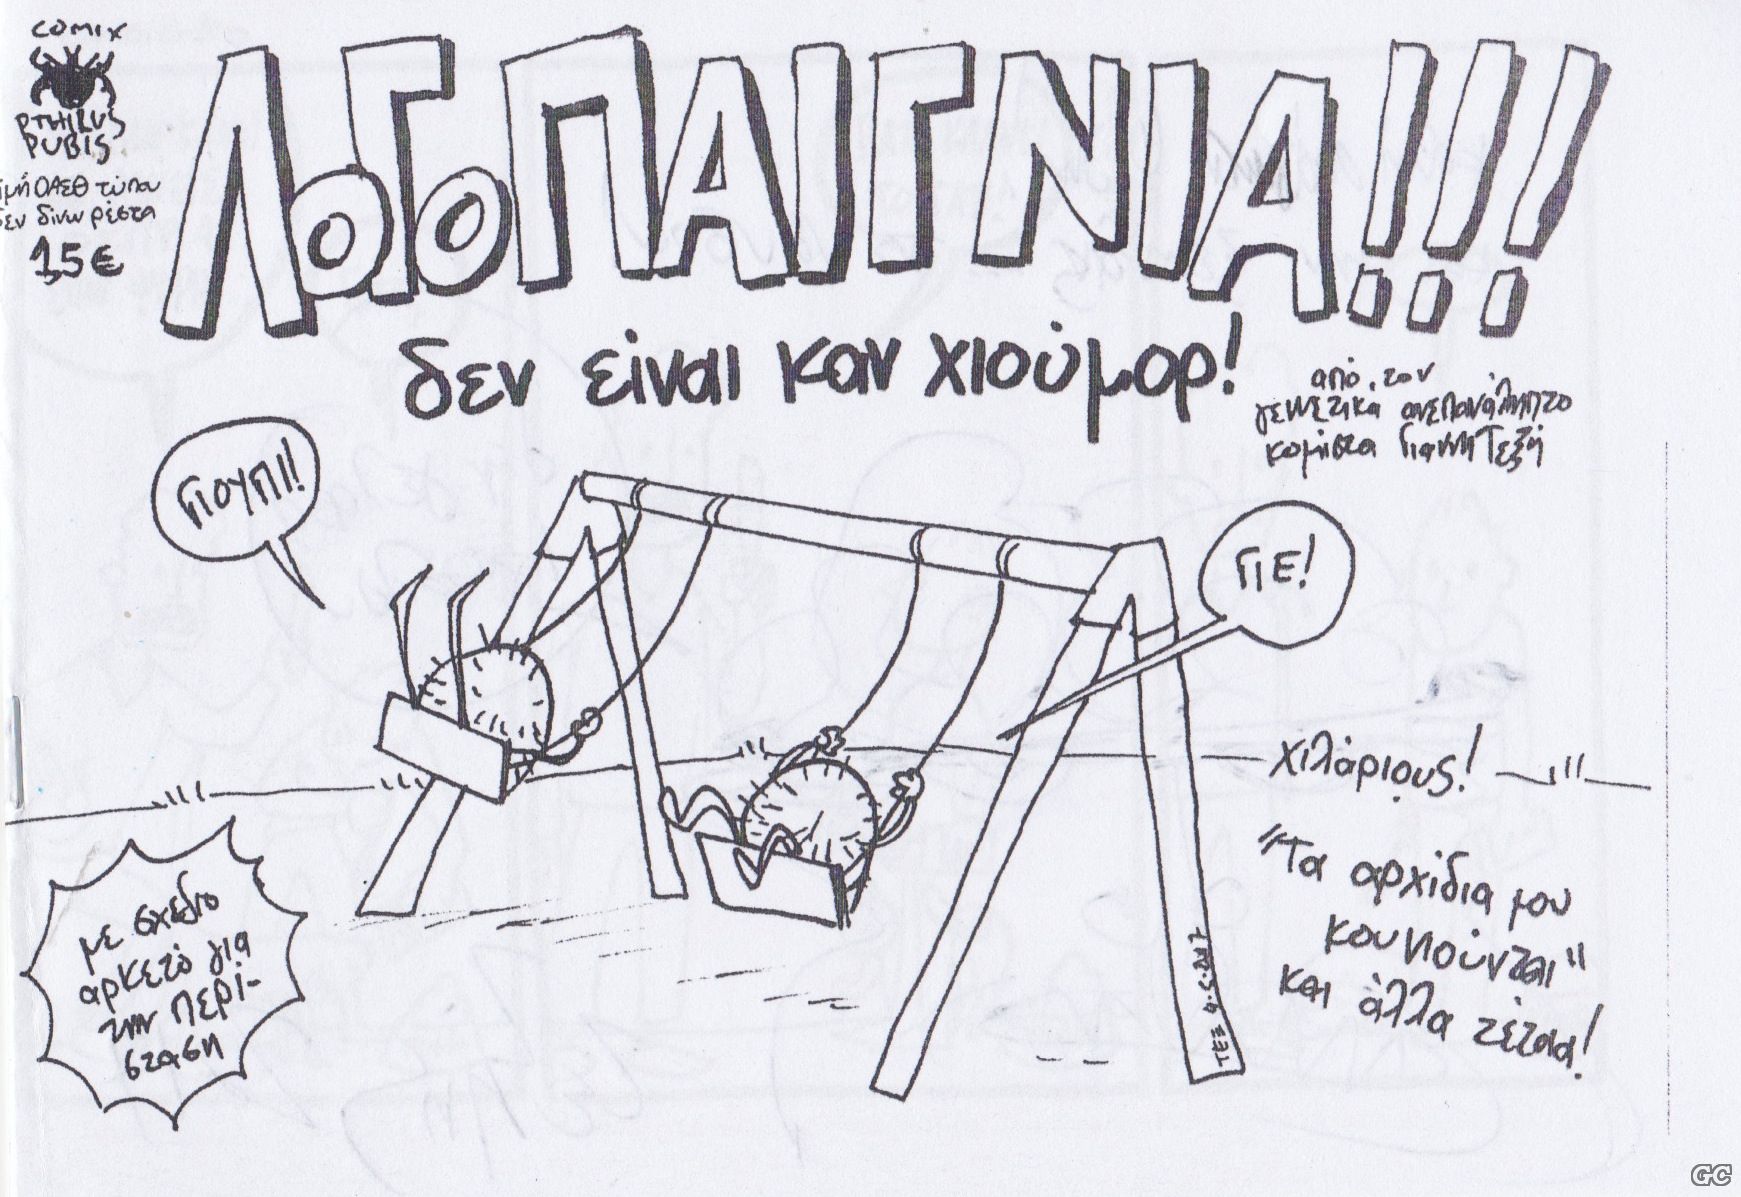 COMIX
PTHIRUS
PUBIS
τιμή ΟΑΣΘ τύπου
δεν δίνω ρέστα
15€
ΛΟΓΟΠΑΙΓΝΙΑ!!!
δεν είναι καν χιούμορ!
από τον
γεννετικά ανεπανάληπτο
κομίστα Γιάννη Τεξή
ΓΙΟΥΠΙ!!
ΓΙΕ!
χιλάριους!
"Τα αρχίδια μου
κουνιούνται"
και άλλα τέτοια!
με σχέδιο
αρκετό για
την περί-
σταση
ΤΕΞ 4.5.2017
GC